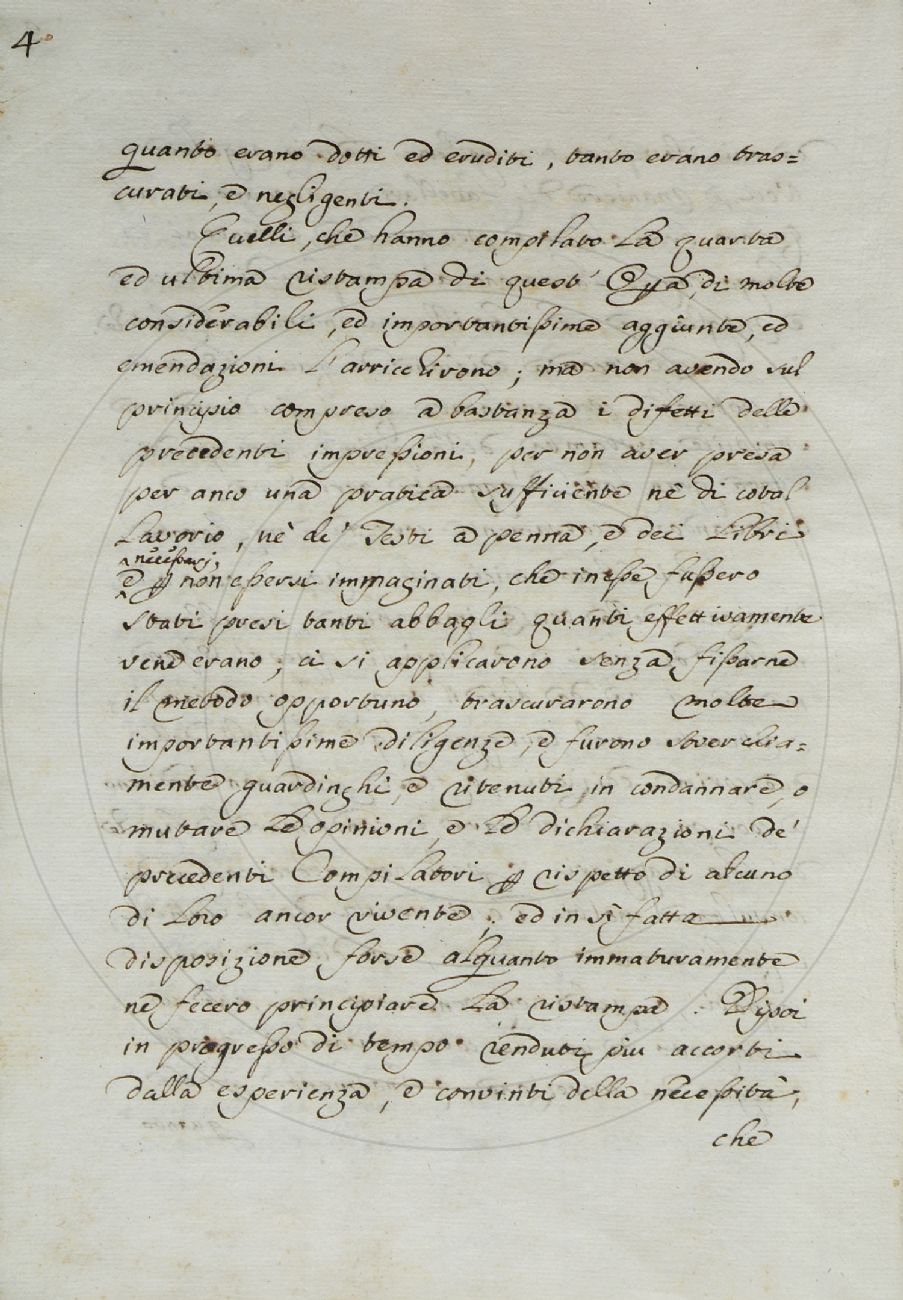 4
quanto erano dotti ed eruditi, tanto erano tras=
curati, e negligenti.
Quelli, che hanno compilato la quarta
ed ultima ristampa di quest' Opa, di molte
considerabili, ed importantissime aggiunte, ed
emendazioni l'arricchirono; ma non avendo sul
principio compreso a bastanza i difetti delle
precedenti impressioni, per non aver presa
per anco una pratica sufficiente nè di cotal
Lavorio, nè de' Testi a penna, e dei Libri
necessarj,
e p non essersi immaginati, che in esse fussero
stati presi tanti abbagli quanti effettivamente
ven' erano; ci si applicarono senza fissarne
il metodo opportuno, trascurarono molte
importantissime diligenze, e furono soverchia=
mente guardinghi, e ritenuti in condannare, o
mutare le opinioni, e le dichiarazioni de'
precedenti Compilatori p rispetto di alcuno
di loro ancor vivente; ed in sì fatta
disposizione forse alquanto immaturamente
ne fecero principiare la ristampa. Dipoi
in progresso di tempo renduti più accorti
dalla esperienza, e convinti della necessità,
che